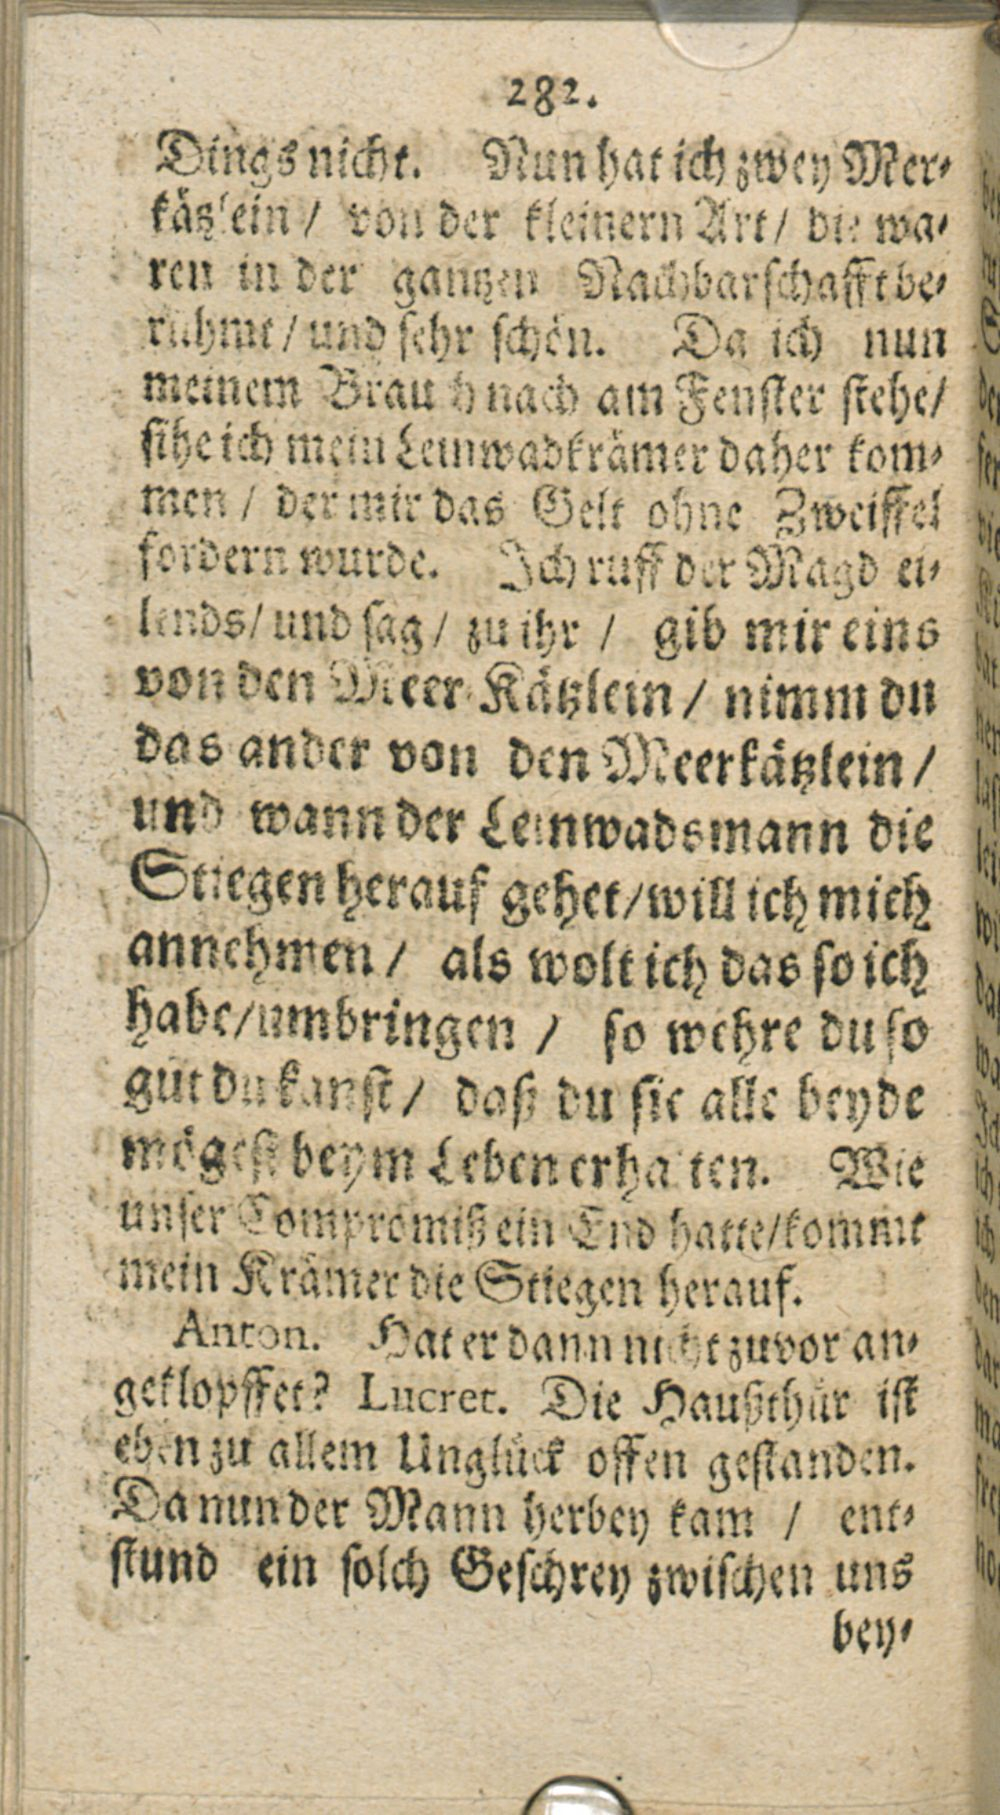 282.
Dings nicht. Nun hat ich zwey Mer-
kätzlein / von der kleinern Art / die wa-
ren in der gantzen Nachbarschafft be-
rühmt / und sehr schön. Da ich nun
meinem Brauch nach am Fenster stehe /
sihe ich mein Leinwadkrämer daher kom-
men / der mir das Gelt ohne Zweiffel
fordern wurde. Ich ruff der Magd ei-
lends / und sag / zu ihr / gib mir eins
von den Meer-Kätzlein / nimm du
das ander von den Meerkätzlein /
und wann der Leinwadsmann die
Stiegen herauf gehet / will ich mich
annehmen / als wolt ich das so ich
habe / umbringen / so wehre du so
gut du kanst / daß du sie alle beyde
mögest beym Leben erhalten. Wie
unser Compromiß ein End hatte / kommt
mein Krämer die Stiegen herauf.
Anton. Hat er dann nicht zuvor an-
geklopffet? Lucret. Die Haußthür ist
eben zu allem Unglück offen gestanden.
Da nun der Mann herbey kam / ent-
stund ein solch Geschrey zwischen uns
bey-